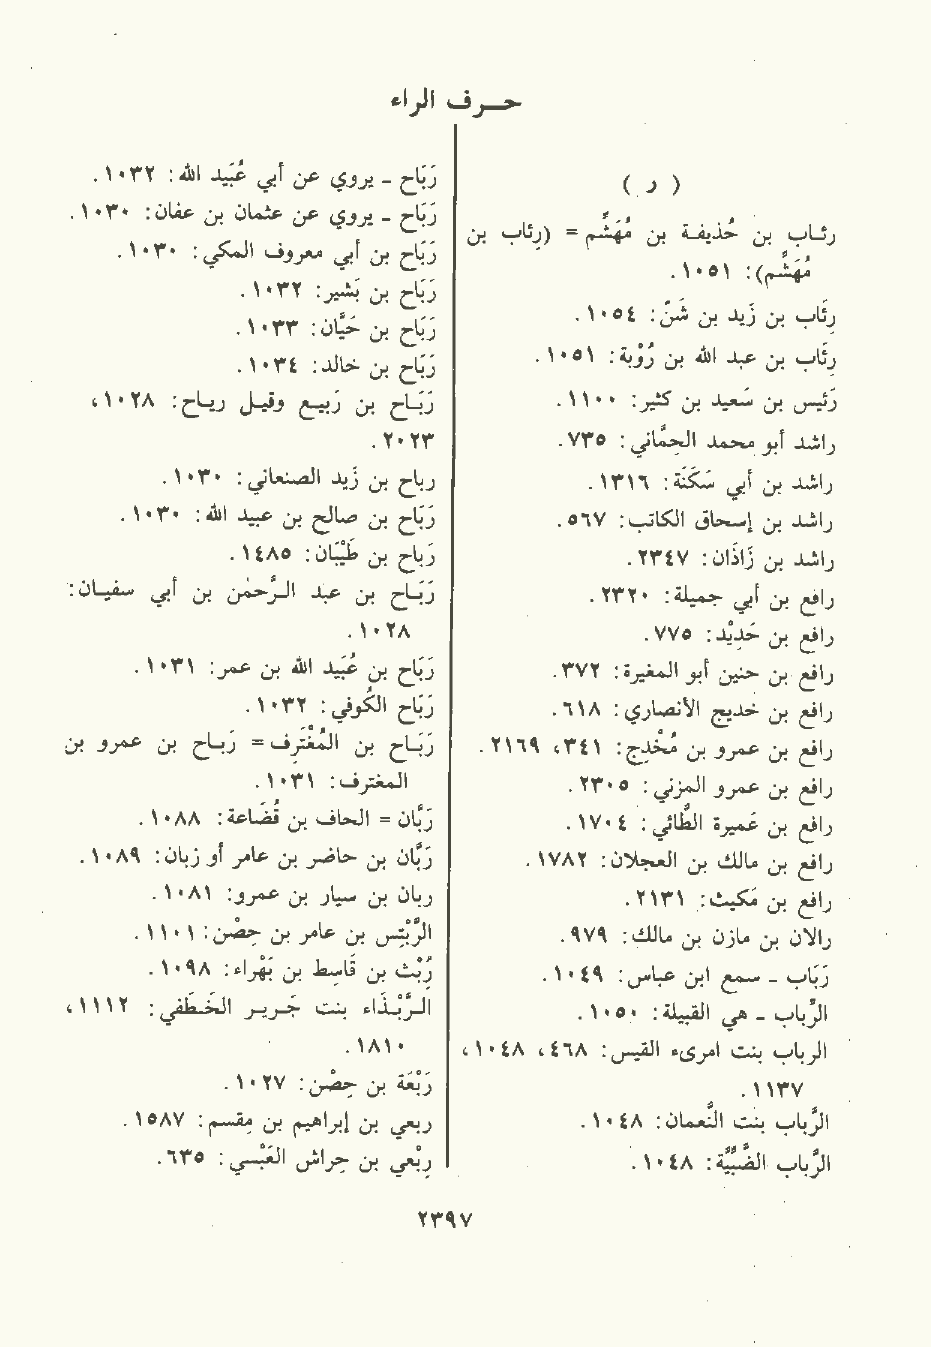 حـرف الراء
( ر )
رئـاب بن حُذيفـة بن مُهَشِّم = (رِئاب بن
مُهَشِّم): ١٠٥١.
رِئَاب بن زَيد بن شَنّ: ١٠٥٤.
رِئَاب بن عبد الله بن رُؤبة: ١٠٥١.
رَئيس بن سَعيد بن كثير: ١١٠٠.
راشد أبو محمد الحِمَّاني: ٧٣٥.
راشد بن أبي سَكَنَة: ١٣١٦.
راشد بن إسحاق الكاتب: ٥٦٧.
راشد بن زَاذَان: ٢٣٤٧.
رافع بن أبي جميلة: ٢٣٢٠.
رافع بن حَدِيْد: ٧٧٥.
رافع بن حنين أبو المغيرة: ٣٧٢.
رافع بن خديج الأنصاري: ٦١٨.
رافع بن عمرو بن مُخْدِج: ٣٤١، ٢١٦٩.
رافع بن عمرو المزني: ٢٣٠٥.
رافع بن عَميرة الطَّائي: ١٧٠٤.
رافع بن مالك بن العجلان: ١٧٨٢.
رافع بن مَكيث: ٢١٣١.
رالان بن مازن بن مالك: ٩٧٩.
رَبَاب - سمع ابن عباس: ١٠٤٩.
الرِّباب - هي القبيلة: ١٠٥٠.
الرباب بنت امرىء القيس: ٤٦٨، ١٠٤٨،
١١٣٧.
الرَّباب بنت النَّعمان: ١٠٤٨.
الرَّباب الضَّبِّيَّة: ١٠٤٨.
رَبَاح - يروي عن أبي عُبَيد الله: ١٠٣٢.
رَبَاح - يروي عن عثمان بن عفان: ١٠٣٠.
رَبَاح بن أبي معروف المكي: ١٠٣٠.
رَبَاح بن بَشير: ١٠٣٢.
رَبَاح بن حَيَّان: ١٠٣٣.
رَبَاح بن خالد: ١٠٣٤.
رَبَـاح بن رَبيـع وقيـل ريـاح: ١٠٢٨،
٢٠٢٣.
رباح بن زَيد الصنعاني: ١٠٣٠.
رَبَاح بن صالح بن عبيد الله: ١٠٣٠.
رَباح بن طَيْبَان: ١٤٨٥.
رَبَـاح بن عبد الـرَّحمٰن بن أبي سفيـان:
١٠٢٨.
رَبَاح بن عُبَيد الله بن عمر: ١٠٣١.
رَبَاح الكُوفي: ١٠٣٢.
رَبَـاح بن المُغْتَرِف = رَبـاح بن عمرو بن
المغترف: ١٠٣١.
رَبَّان = الحاف بن قُضَاعة: ١٠٨٨.
رَبَّان بن حاضر بن عامر أو زبان: ١٠٨٩.
ربان بن سيار بن عمرو: ١٠٨١.
الرَّبْتِس بن عامر بن حِصْن: ١١٠١.
رُبْث بن قَاسِط بن بَهْراء: ١٠٩٨.
الـرَّبْـذَاء بنت جَـريـر الخَـطَفي: ١١١٢،
١٨١٠.
رَبْعَة بن حِصْن: ١٠٢٧.
ربعي بن إبراهيم بن مِقسم: ١٥٨٧.
رِبْعي بن حِراش العَبْسي: ٦٣٥.
٢٣٩٧